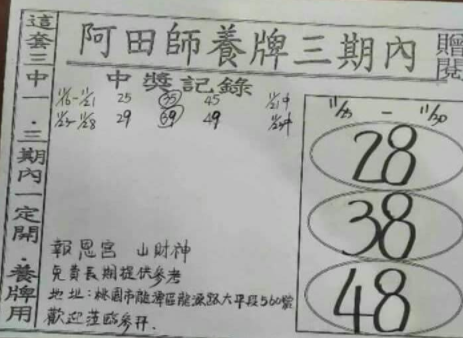 阿田師養牌三期內
贈閱
這套三中一．三期內一定開．養牌用
中獎記錄
11/16-11/21 25 35 45 11/21中
11/23-11/28 29 39 49
11/25 - 11/30
28
38
48
報恩宮 山財神
免費長期提供參考
地址：桃園市龍潭區龍源路大平段560號
歡迎蒞臨參拜．